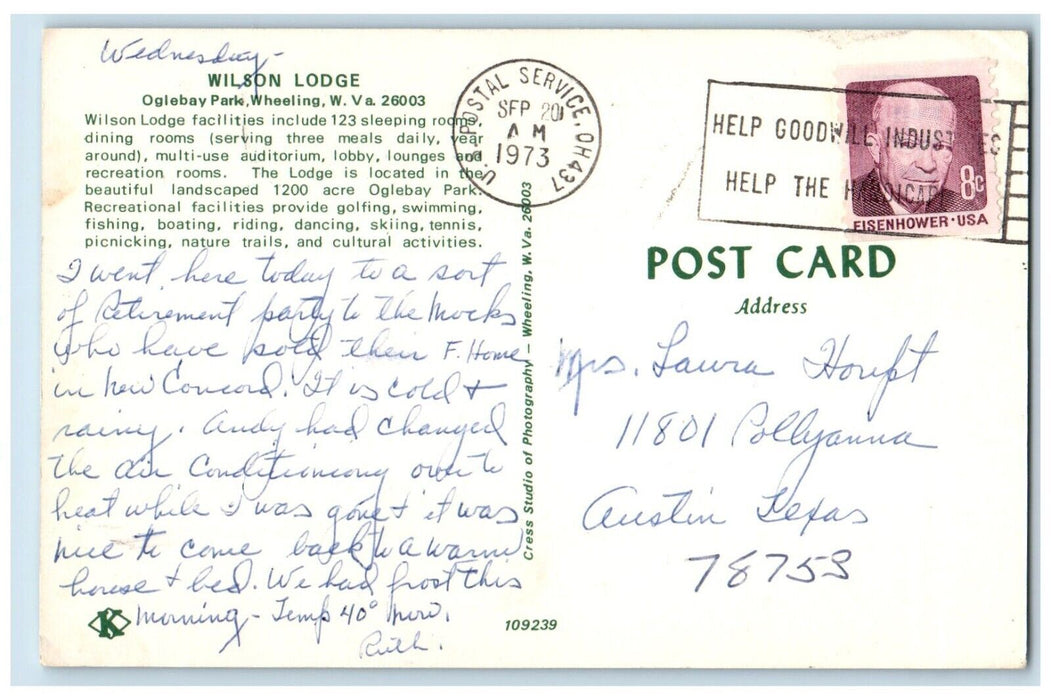 Wednesday -
WILSON LODGE
Oglebay Park, Wheeling, W. Va. 26003
Wilson Lodge facilities include 123 sleeping rooms,
dining rooms (serving three meals daily, year
around), multi-use auditorium, lobby, lounges and
recreation rooms. The Lodge is located in the
beautiful landscaped 1200 acre Oglebay Park.
Recreational facilities provide golfing, swimming,
fishing, boating, riding, dancing, skiing, tennis,
picnicking, nature trails, and cultural activities.
I went here today to a sort
of Retirement party to the Mocks
who have sold their F. Home
in New Concord. It is cold +
rainy. Andy had changed
the air Conditioning over to
heat while I was gone + it was
nice to come back to a warm
house + bed. We had frost this
morning - Temp 40° now.
Ruth.
K
109239
Cress Studio of Photography — Wheeling, W. Va. 26003
U.S. POSTAL SERVICE, OH 437
SEP 20
AM
1973
HELP GOODWILL INDUSTRIES
HELP THE HANDICAP
8c
EISENHOWER·USA
POST CARD
Address
Mrs. Laura Houft
11801 Pollyanna
Austin Texas
78753